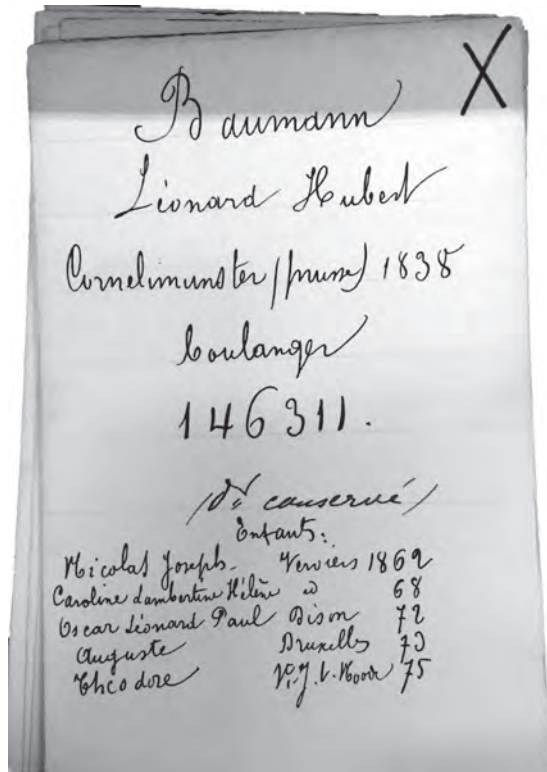 X
Baumann
Léonard Hubert
Cornelimunster (prusse) 1838
boulanger
146311.
(dr conservé)
Enfants:
Nicolas Joseph. Verviers 1862
Caroline Lambertine Hélène id 68
Oscar Léonard Paul Dison 72
Auguste Bruxelles 73
Théodore St. J. t. Noode 75